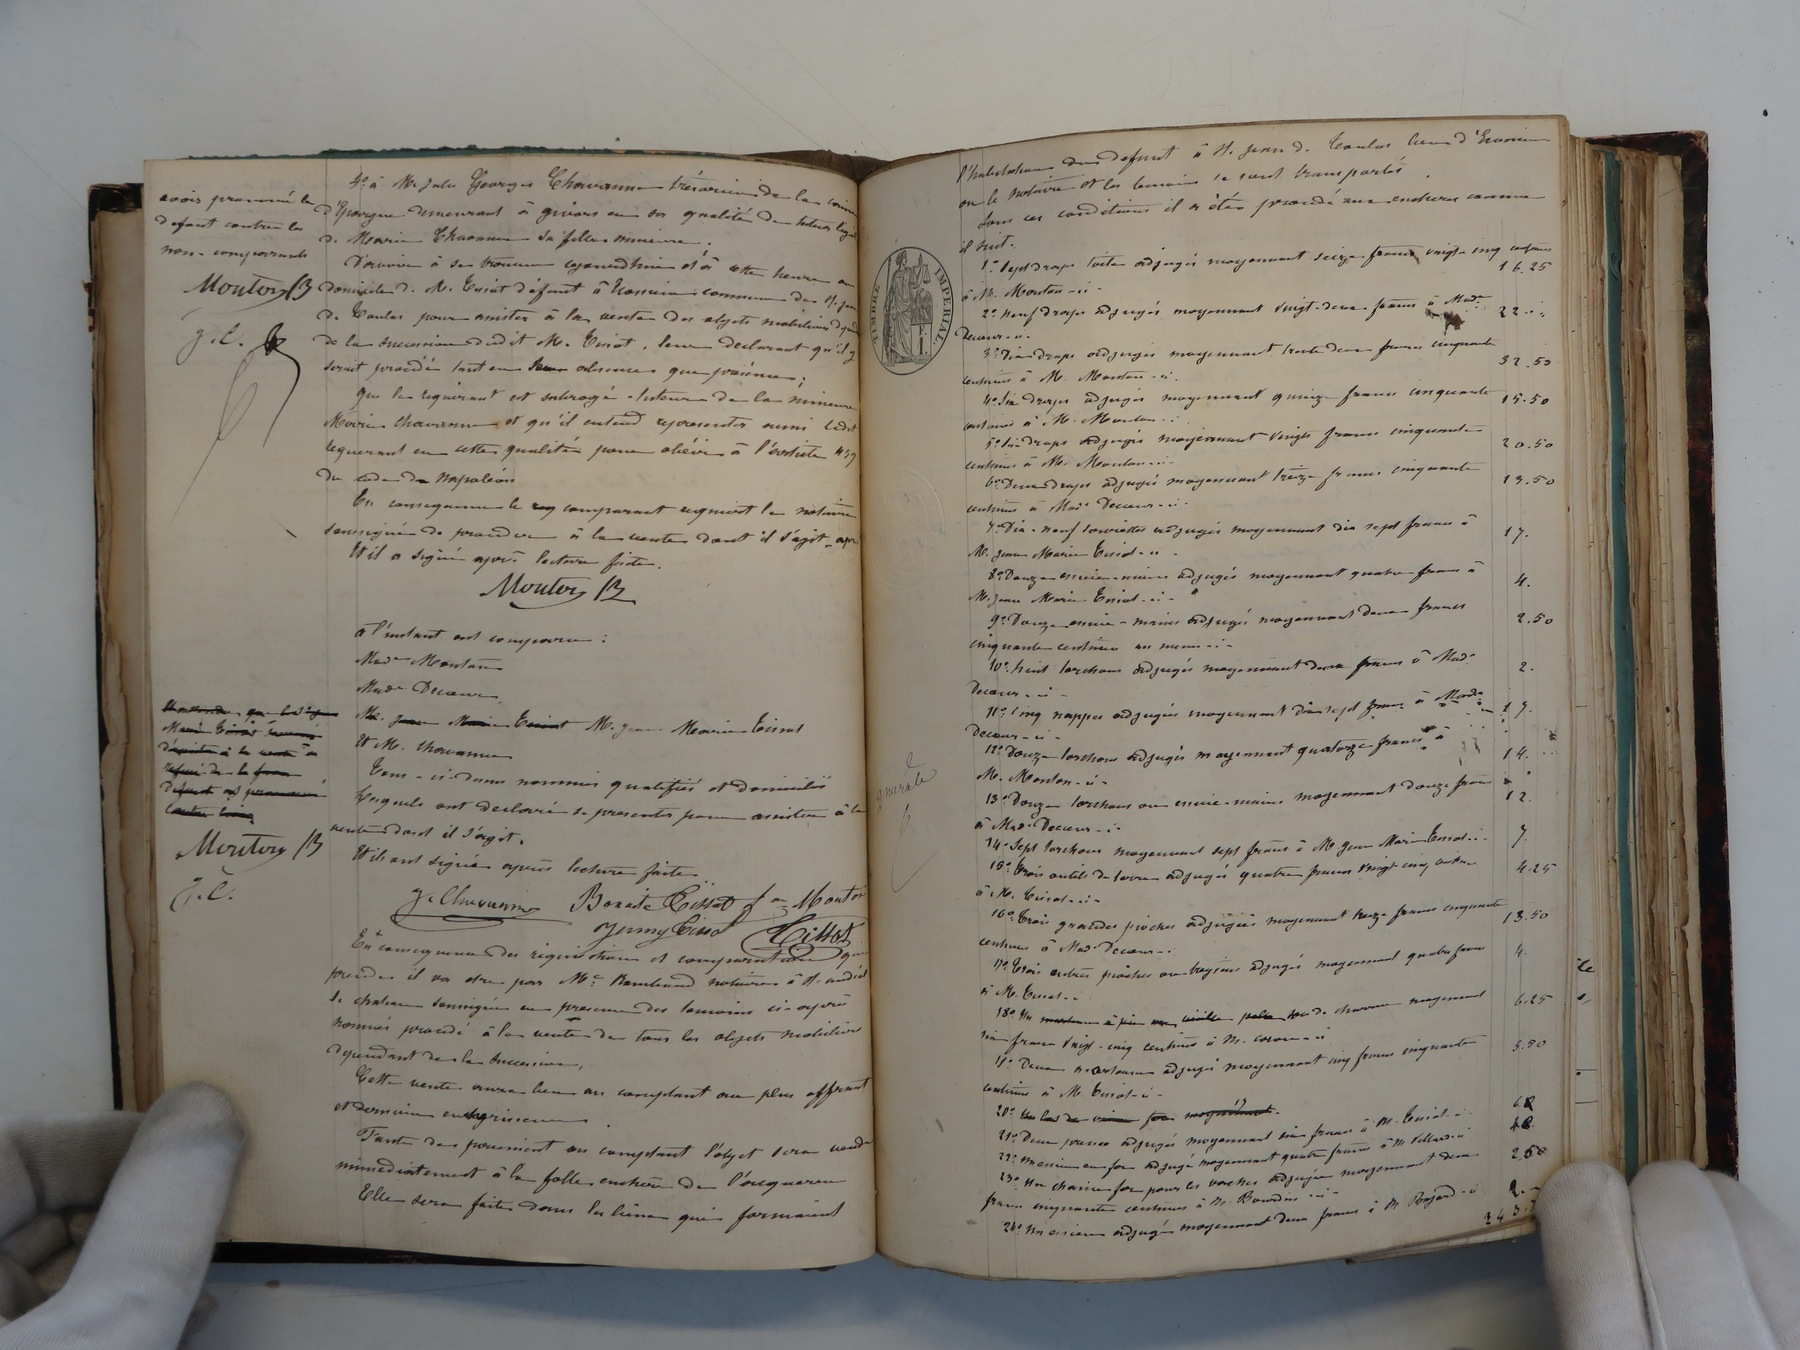 avois prononcé le
défaut contre les
non-comparants
Mouton B
J. C.
4° à M. Jules Georges Chavanne trésorier de la caisse
d'Epargne demeurant à givors en sa qualité de tuteur légal
de Marie Chavanne sa fille mineure.
D'avoir à se trouver aujourd'hui et à cette heure au
domicile de M. Tissot défunt à commune de St jean
de Toulas pour assister à la vente des objets mobiliers dépendant
de la succession dudit M. Tissot, leur déclarant qu'il y
serait procédé tant en leur absence que présence;
Que le requérant est subrogé-tuteur de la mineure
Marie Chavanne et qu'il entend représenter aussi ledit
requérant en cette qualité pour obéir à l'article 459
du code de Napoléon
En conséquence le req comparant requiert le notaire
soussigné de procéder à la vente dont il s'agit
Et il a signé après lecture faite.
Mouton B
à l'instant ont comparu :
Made Mouton
Made Decoeur
M. jean Marie Tissot M. jean Marie Tissot
Et M. Chavanne
Tous ci-dessus nommés qualifiés et domiciliés
Lesquels ont déclaré se présenter pour assister à la
vente dont il s'agit.
Et ils ont signé après lecture faite
Mouton B
J. C.
J. Chavanne Benoite Tissot fe Mouton
Jenny Tissot Tissot
En conséquence des réquisitions et comparution qui
précèdent il va être par Me notaire à St andéol
le chateau soussigné en présence des témoins ci-après
nommés procédé à la vente de tous les objets mobiliers
dépendant de la succession.
Cette vente aura lieu au comptant au plus offrant
et dernier enchérisseur.
Faute de paiement au comptant l'objet sera vendu
immédiatement à la folle enchère de l'acquéreur
Elle sera faite dans les lieux qui formaient
l'habitation du défunt à St jean de Toulas lieu d'
ou le notaire et les témoins se sont transportés
Sous ces conditions il a été procédé aux enchères comme
il suit.
TIMBRE IMPERIAL
1° Sept draps toile adjugés moyennant seize francs vingt-cinq centimes
à M. Mouton - ci - 16.25
2° neuf draps adjugés moyennant vingt-deux francs à Made 22
Decoeur - ci -
3° Six draps adjugés moyennant trente deux francs cinquante
centimes à M. Mouton - ci - 32.50
4° Six draps adjugés moyennant quinze francs cinquante 15.50
centimes à M. Mouton - ci -
5° Six draps adjugés moyennant vingt francs cinquante 20.50
centimes à M. Mouton - ci -
6° Deux draps adjugés moyennant treize francs cinquante 13.50
centimes à Made Decoeur - ci -
7° Dix-neuf serviettes adjugées moyennant dix sept francs à 17.
M. jean Marie Tissot - ci -
8° Douze essuie-mains adjugés moyennant quatre francs à 4.
M. jean Marie Tissot - ci -
9° Douze essuie-mains adjugés moyennant deux francs 2.50
cinquante centimes au meme - ci -
10° huit torchons adjugés moyennant deux francs à Made 2.
Decoeur - ci -
11° Cinq nappes adjugés moyennant dix sept francs à Made 17.
Decoeur - ci -
12° Douze torchons adjugés moyennant quatorze francs à 14.
M. Mouton - ci -
13° Douze torchons ou essuie-mains moyennant douze francs 12.
à Made Decoeur - ci -
14° Sept torchons moyennant sept francs à M. jean Marie Tissot - ci - 7.
15° Trois outils de terre adjugés quatre francs vingt cinq centimes 4.25
à M. Tissot - ci -
16° Trois grandes pioches adjugées moyennant treize francs cinquante 13.50
centimes à Made Decoeur - ci -
17° Trois autres pioches ou adjugés moyennant quatre francs 4.
à M. Tissot - ci -
18° Un de charrue moyennant 6.25
six francs vingt-cinq centimes à M. - ci
19° Deux marteaux adjugés moyennant cinq francs cinquante 5.50
centimes à M. Tissot - ci -
20° Un
21° Deux adjugés moyennant six francs à M. Tissot - ci - 6
22° Un en fer adjugé moyennant quatre francs à M - ci 4
23° Une chaine fer pour les vaches adjugée moyennant deux 2.50
francs cinquante centimes à M. Bourdin - ci -
24° Un adjugé moyennant deux francs à M. - ci 2.